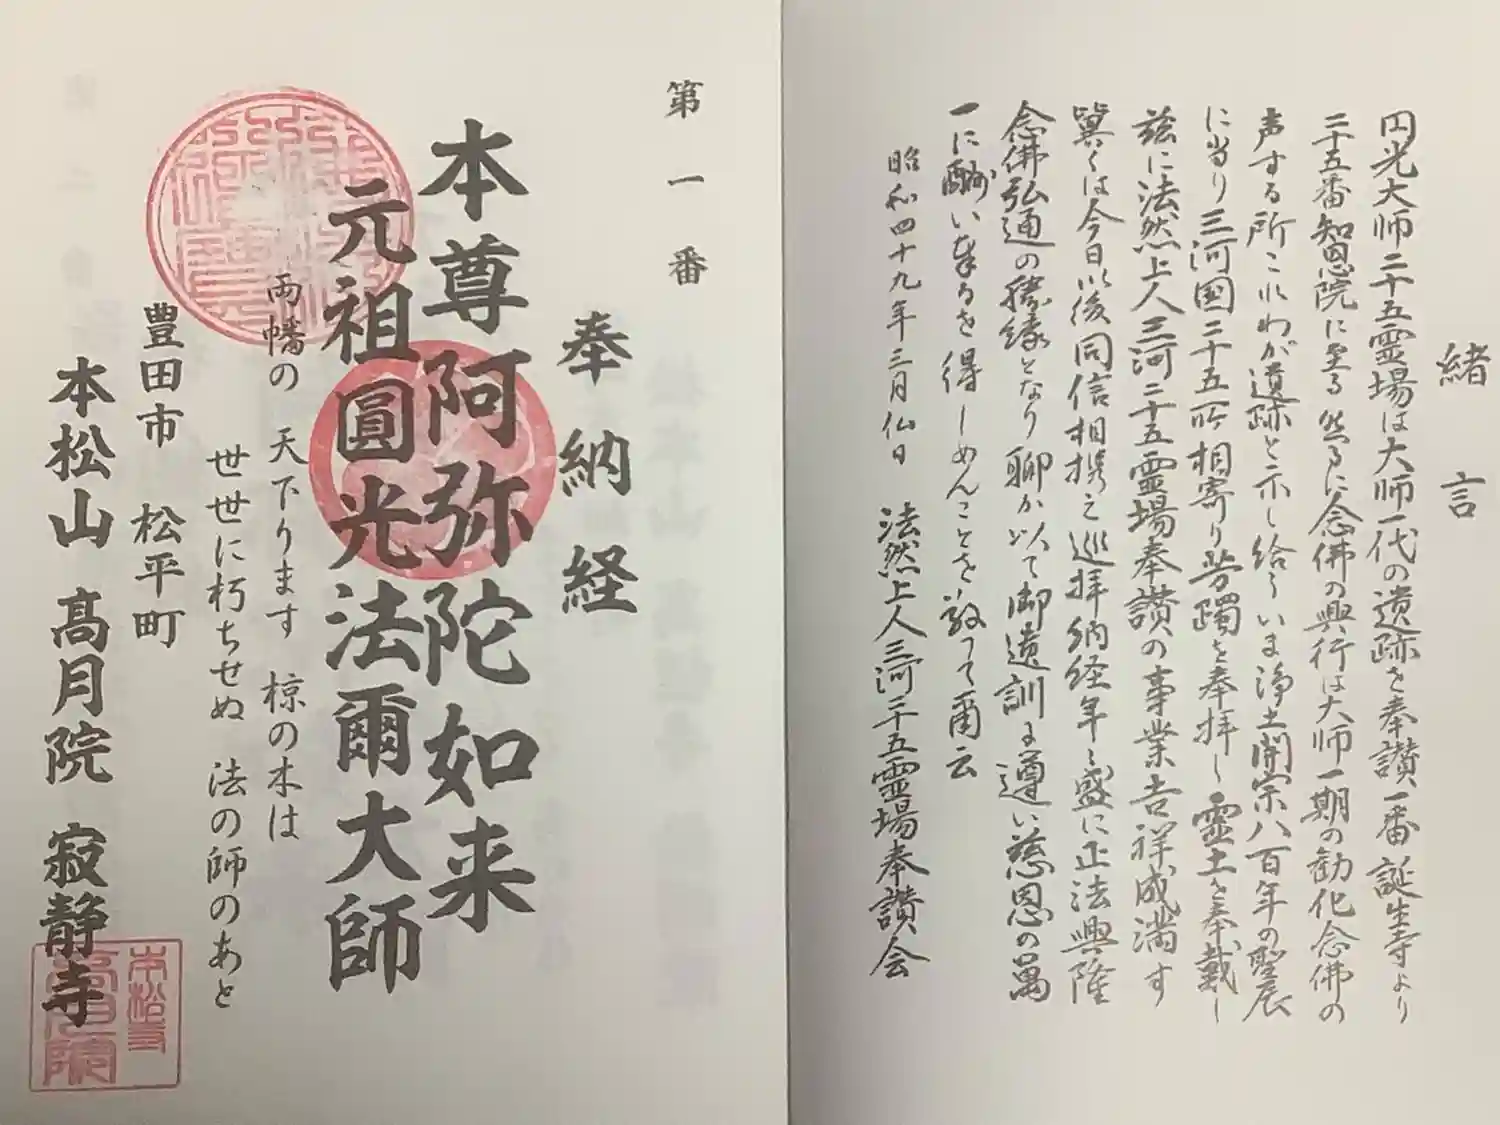 緒言
円光大師二十五霊場は大師一代の遺跡を奉讃一番誕生寺より
二十五番知恩院に至る然るに念佛の興行は大師一期の勧化念佛の
声する所これわが遺跡と示し給ういま浄土開宗八百年の聖辰
に当り三河国二十五所相寄り芳躅を奉拝し霊土を奉戴し
茲に法然上人三河二十五霊場奉讃の事業吉祥成満す
冀くは今日以後同信相携え巡拝納経年々盛に正法興隆
念佛弘通の勝縁となり聊か以て御遺訓に遵い慈恩の萬
一に酬い奉るを得しめんことを敬って爾云
昭和四十九年三月仏日 法然上人三河二十五霊場奉讃会
第一番
奉納経
本尊阿弥陀如来
元祖圓光法爾大師
両幡の 天下ります 椋の木は
世世に朽ちせぬ 法の師のあと
豊田市 松平町
本松山 高月院 寂静寺
本松寺
高月院